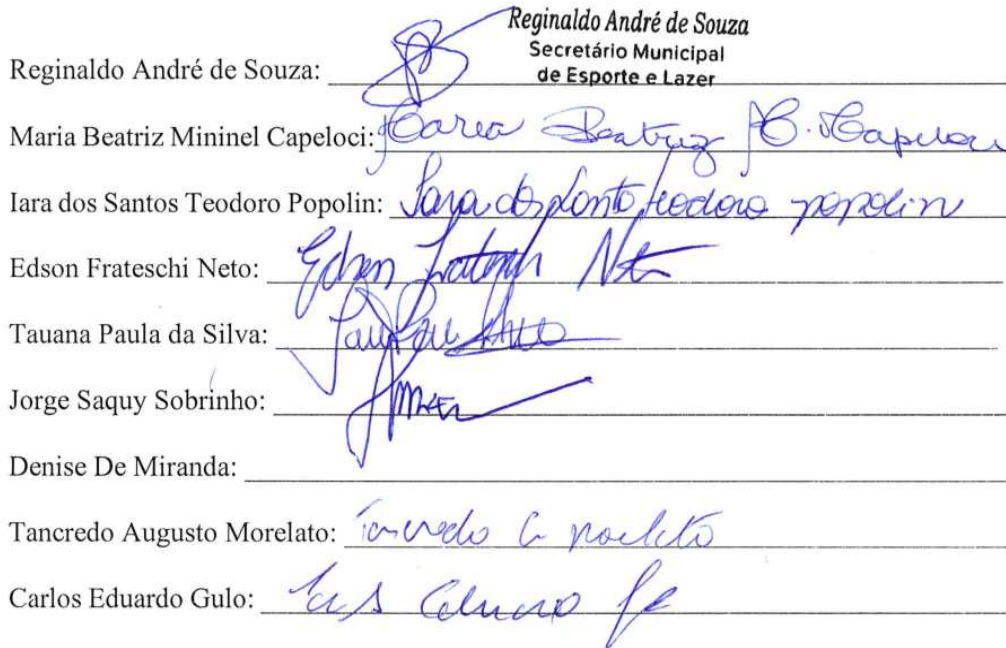 Reginaldo André de Souza
Secretário Municipal
de Esporte e Lazer
Reginaldo André de Souza:
Maria Beatriz Mininel Capeloci: Maria Beatriz M. Capeloci
Iara dos Santos Teodoro Popolin: Iara dos Santos teodoro popolin
Edson Frateschi Neto: Edson Frateschi Neto
Tauana Paula da Silva:
Jorge Saquy Sobrinho:
Denise De Miranda:
Tancredo Augusto Morelato: Tancredo A Morelato
Carlos Eduardo Gulo: